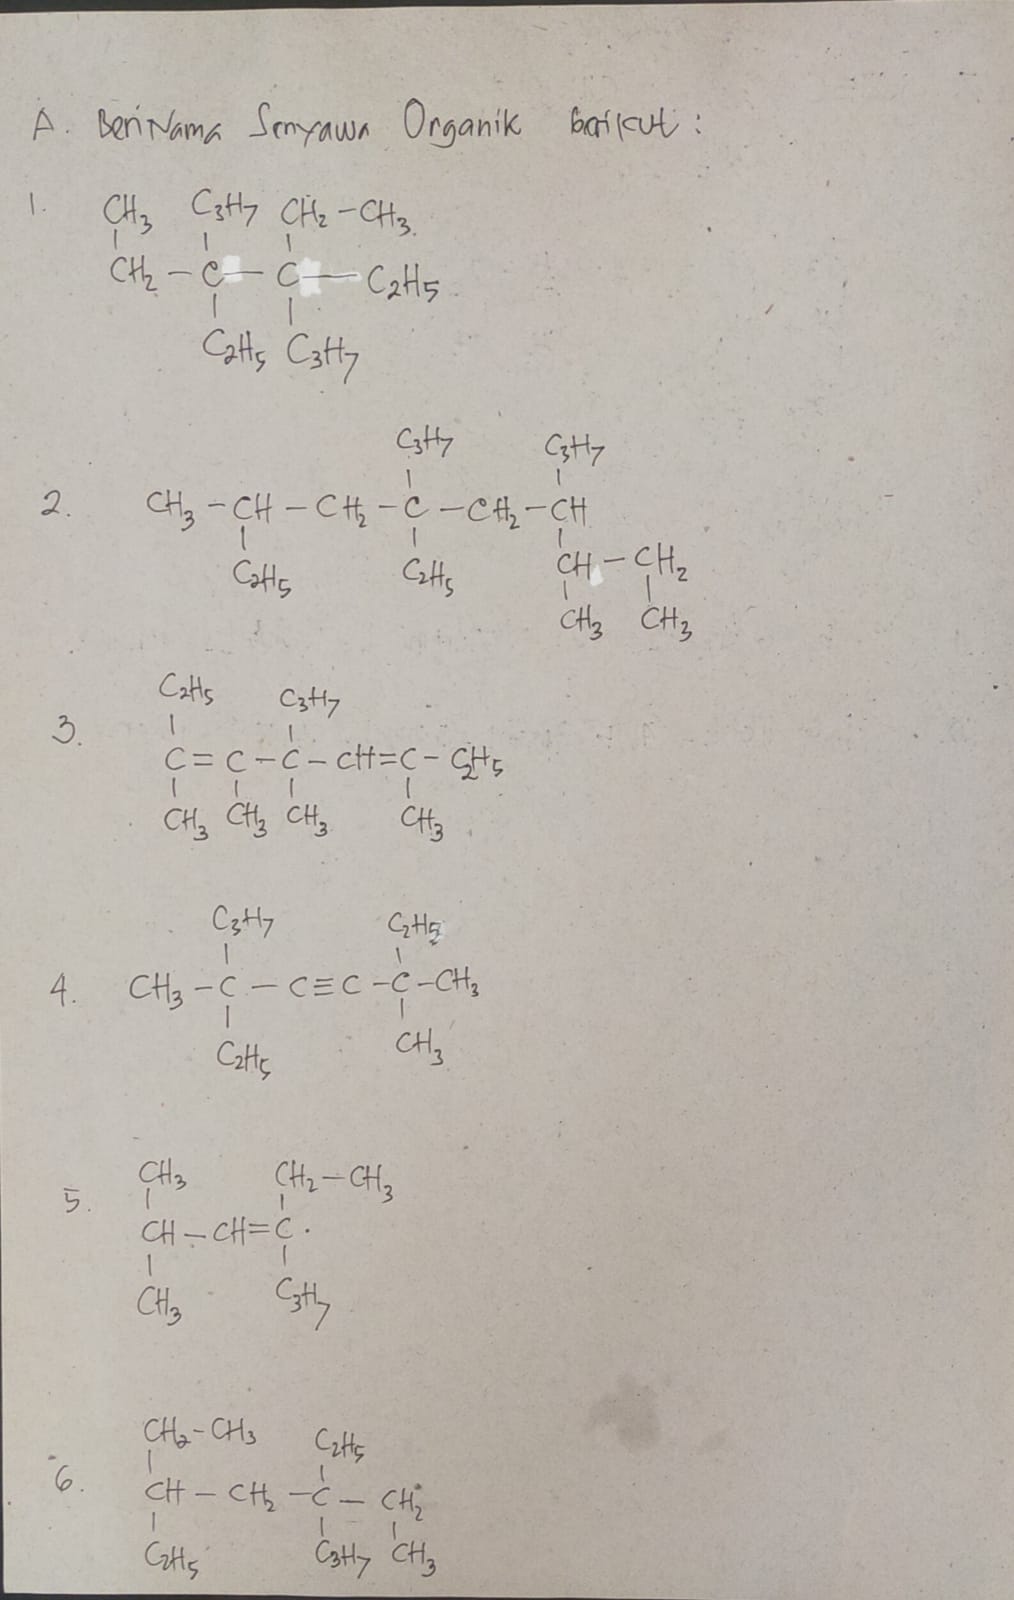 A. Beri Nama Senyawa Organik berikut :
1. CH3 C3H7 CH2 - CH3
CH2 - C - C - C2H5
C2H5 C3H7
C3H7 C3H7
2. CH3 - CH - CH2 - C - CH2 - CH
C2H5 C2H5 CH - CH2
CH3 CH3
C2H5 C3H7
3. C = C - C - CH = C - C2H5
CH3 CH3 CH3 CH3
C3H7 C2H5
4. CH3 - C - C ≡ C - C - CH3
C2H5 CH3
CH3 CH2 - CH3
5. CH - CH = C
CH3 C3H7
CH2 - CH3 C2H5
6. CH - CH2 - C - CH2
C2H5 C3H7 CH3